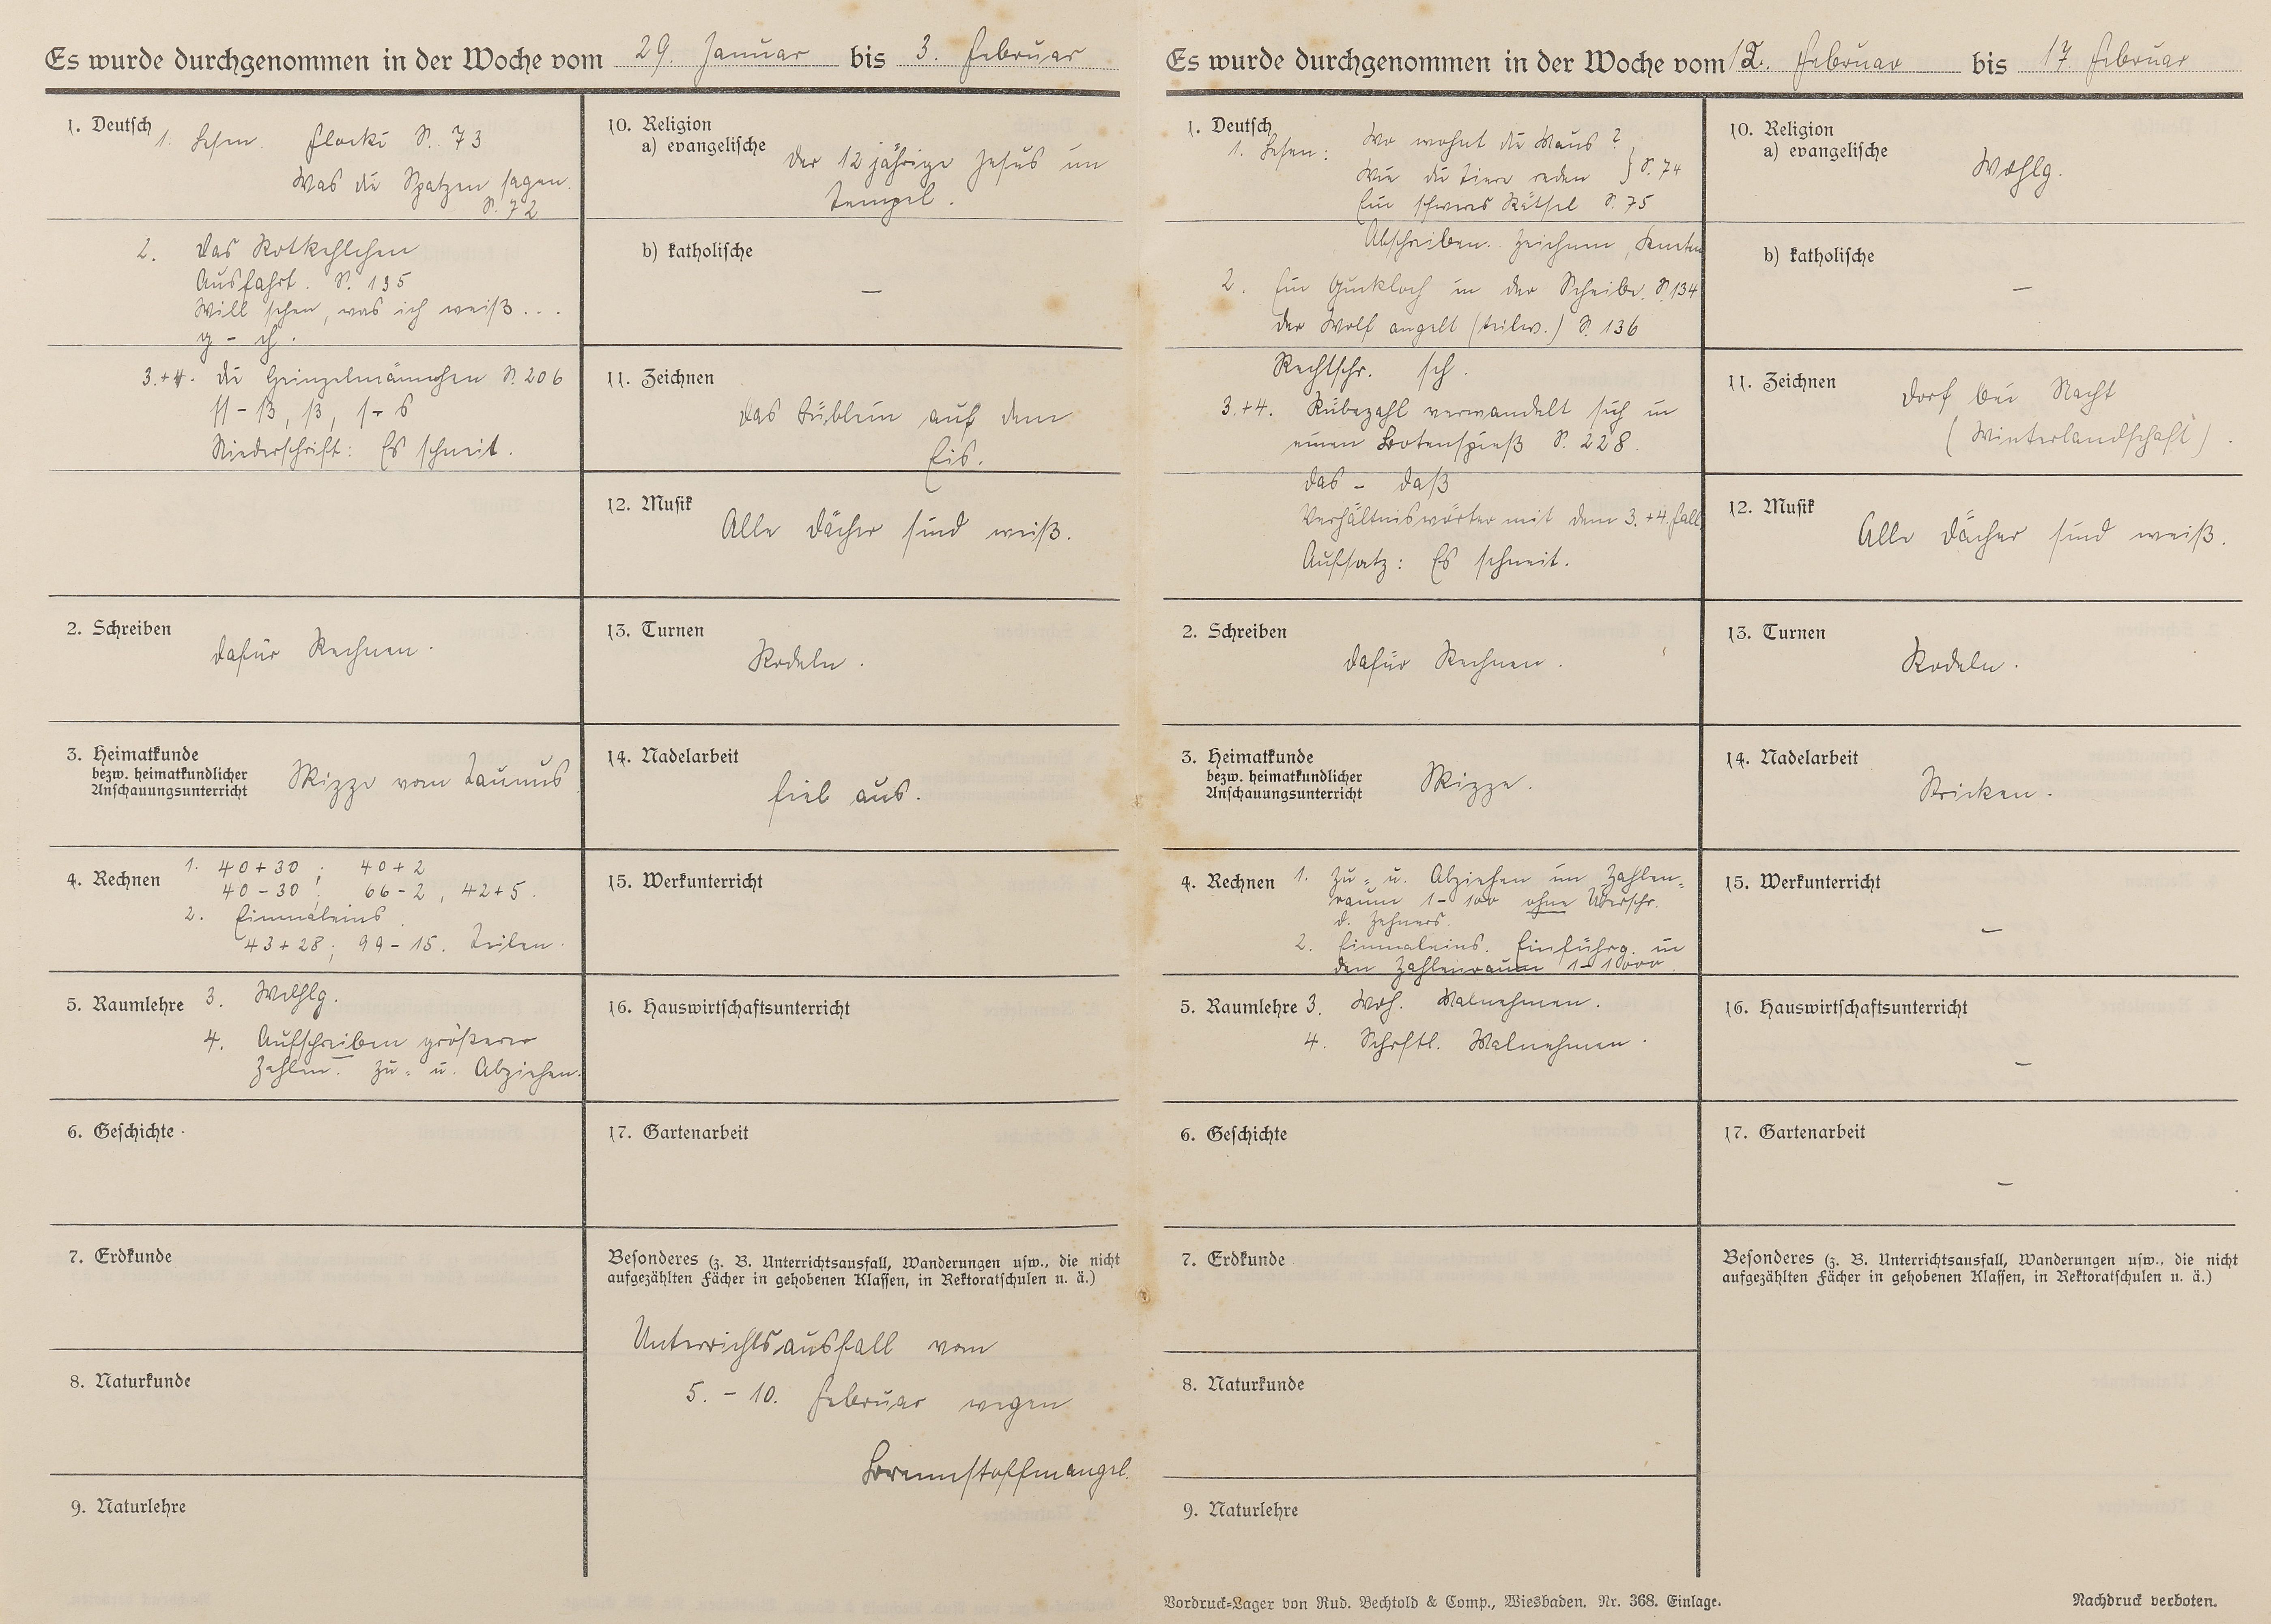 Es wurde durchgenommen in der Woche vom 29. Januar bis 3. Februar
1. Deutsch
1. Lesen. Flocki S. 73
Was die Spatzen sagen.
S. 72
2. Das Rotkehlchen
Ausfahrt. S. 135
Will sehen, was ich weiß...
g - ch.
3.+4. Die Heinzelmännchen S. 206
ss - ß, ß, s - s
Niederschrift: Es schneit.
2. Schreiben
dafür Rechnen.
3. Heimatkunde
bezw. heimatkundlicher
Anschauungsunterricht
Skizze vom Taunus
4. Rechnen
1. 40+30 ; 40+2
40-30 ; 66-2, 42+5.
2. Einmaleins
43+28; 99-15. Teilen.
5. Raumlehre
3. Wdhlg.
4. Aufschreiben größerer
Zahlen. Zu- u. Abziehen.
6. Geschichte
7. Erdkunde
8. Naturkunde
9. Naturlehre
10. Religion
a) evangelische
Der 12 jährige Jesus im
Tempel.
b) katholische
—
11. Zeichnen
Das Büblein auf dem
Eis.
12. Musik
Alle Dächer sind weiß.
13. Turnen
Rodeln.
14. Nadelarbeit
fiel aus.
15. Werkunterricht
16. Hauswirtschaftsunterricht
17. Gartenarbeit
Besonderes (z. B. Unterrichtsausfall, Wanderungen usw., die nicht
aufgezählten Fächer in gehobenen Klassen, in Rektoratschulen u. ä.)
Unterrichtsausfall vom
5. - 10. Februar wegen
Brennstoffmangel.
Es wurde durchgenommen in der Woche vom 12. Februar bis 17 Februar
1. Deutsch
1. Lesen: Wo wohnt die Maus?
Wie die Tiere reden } S. 74
Ein schweres Rätsel S. 75
Abschreiben. Zeichnen, Kneten
2. Ein Guckloch in der Scheibe. S. 134
Der Wolf angelt (teilw.) S. 136
Rechtschr. sch.
3.+4. Rübezahl verwandelt sich in
einen Botenspieß S. 228.
das - daß
Verhältniswörter mit dem 3.+4. Fall
Aufsatz: Es schneit.
2. Schreiben
dafür Rechnen.
3. Heimatkunde
bezw. heimatkundlicher
Anschauungsunterricht
Skizze.
4. Rechnen
1. Zu- u. Abziehen im Zahlen-
raum 1-100 ohne Überschr.
d. Zehners.
2. Einmaleins. Einführg. in
den Zahlenraum 1-1000.
5. Raumlehre
3. Wdh. Malnehmen.
4. Schrftl. Malnehmen.
6. Geschichte
7. Erdkunde
8. Naturkunde
9. Naturlehre
10. Religion
a) evangelische
Wdhlg.
b) katholische
—
11. Zeichnen
Dorf bei Nacht
(Winterlandschaft).
12. Musik
Alle Dächer sind weiß.
13. Turnen
Rodeln.
14. Nadelarbeit
Stricken.
15. Werkunterricht
—
16. Hauswirtschaftsunterricht
—
17. Gartenarbeit
—
Besonderes (z. B. Unterrichtsausfall, Wanderungen usw., die nicht
aufgezählten Fächer in gehobenen Klassen, in Rektoratschulen u. ä.)
Vordruck-Lager von Rud. Bechtold & Comp., Wiesbaden. Nr. 368. Einlage.
Nachdruck verboten.